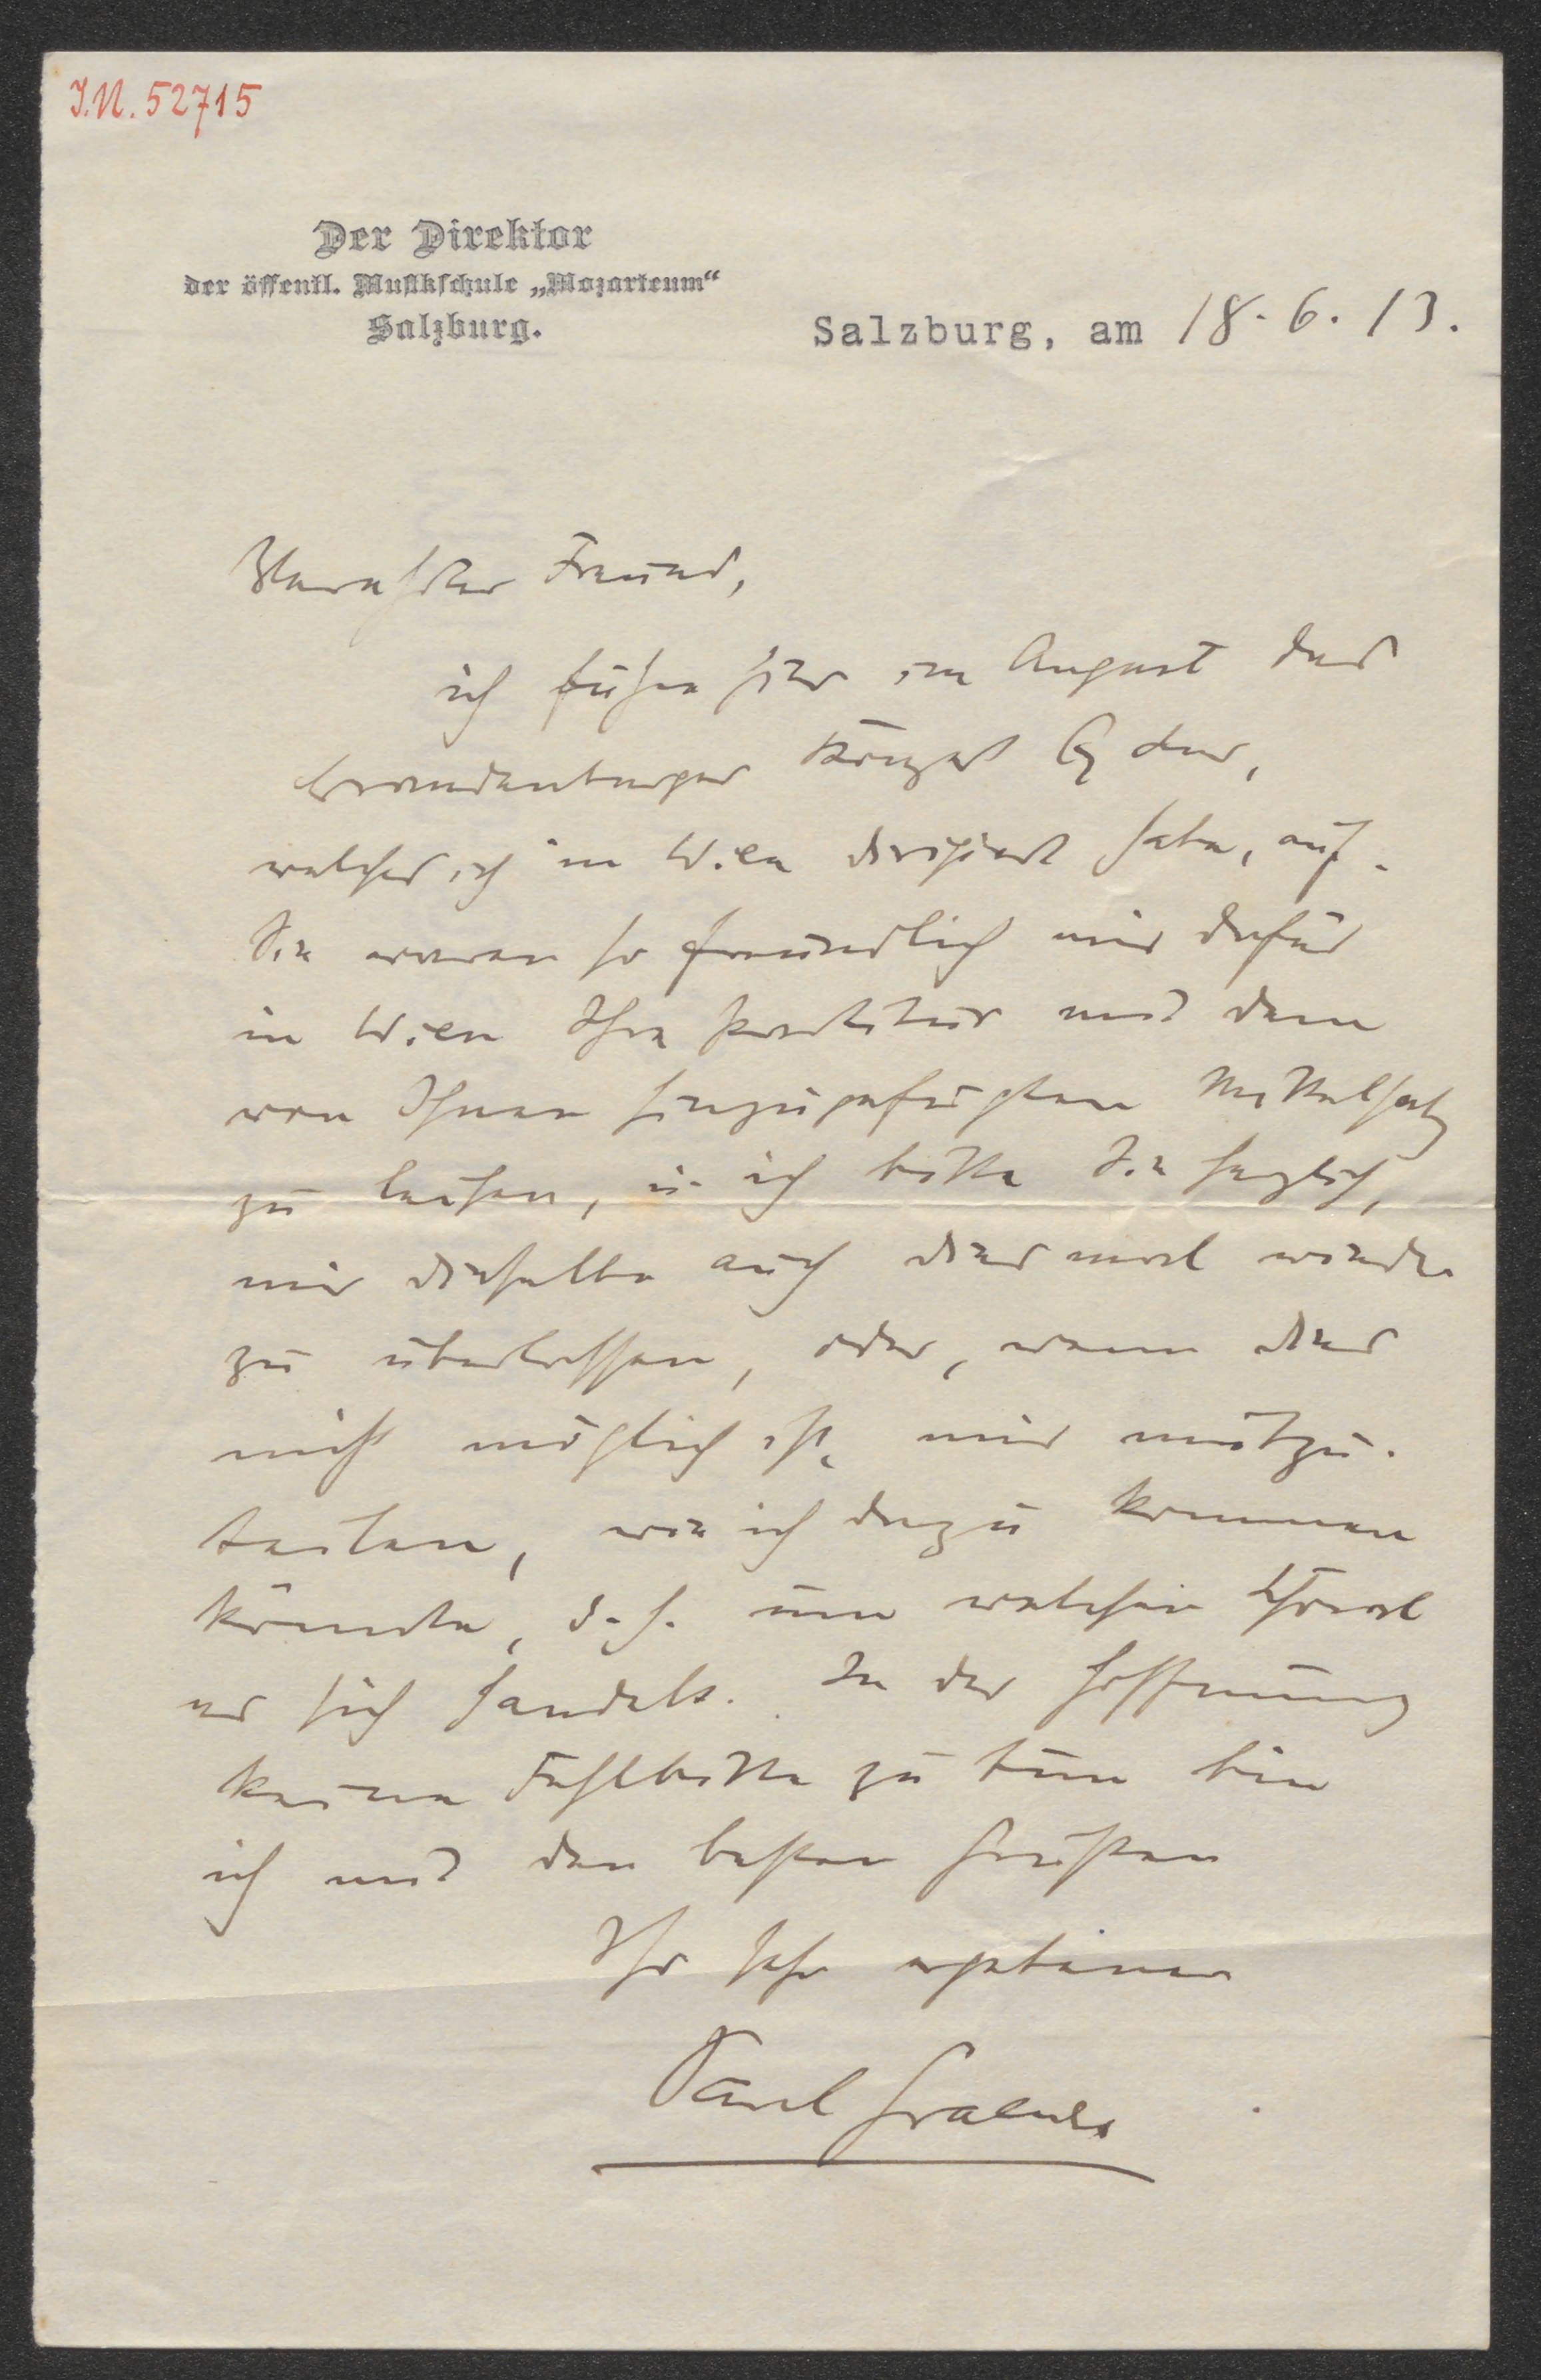 I.N. 52715
Der Direktor
der öffentl. Musikschule „Mozarteum“
Salzburg.
Salzburg, am 18. 6. 13.
Verehrter Freund,
ich führe hier im August das
brandenburger Konzert G dur,
welches ich in Wien dirigiert habe, auf.
Sie waren so freundlich mir dafür
in Wien Ihre Partitur mit dem
von Ihnen hinzugefügten Mittelsatz
zu leihen, u. ich bitte Sie herzlich,
mir dieselbe auch diesmal wieder
zu überlassen, oder, wenn dies
nicht möglich ist, mir mitzu-
teilen, wie ich dazu kommen
könnte, d. h. um welchen Choral
es sich handelt. In der Hoffnung
keine Fehlbitte zu tun bin
ich mit den besten Grüßen
Ihr sehr ergebener
Paul Graener